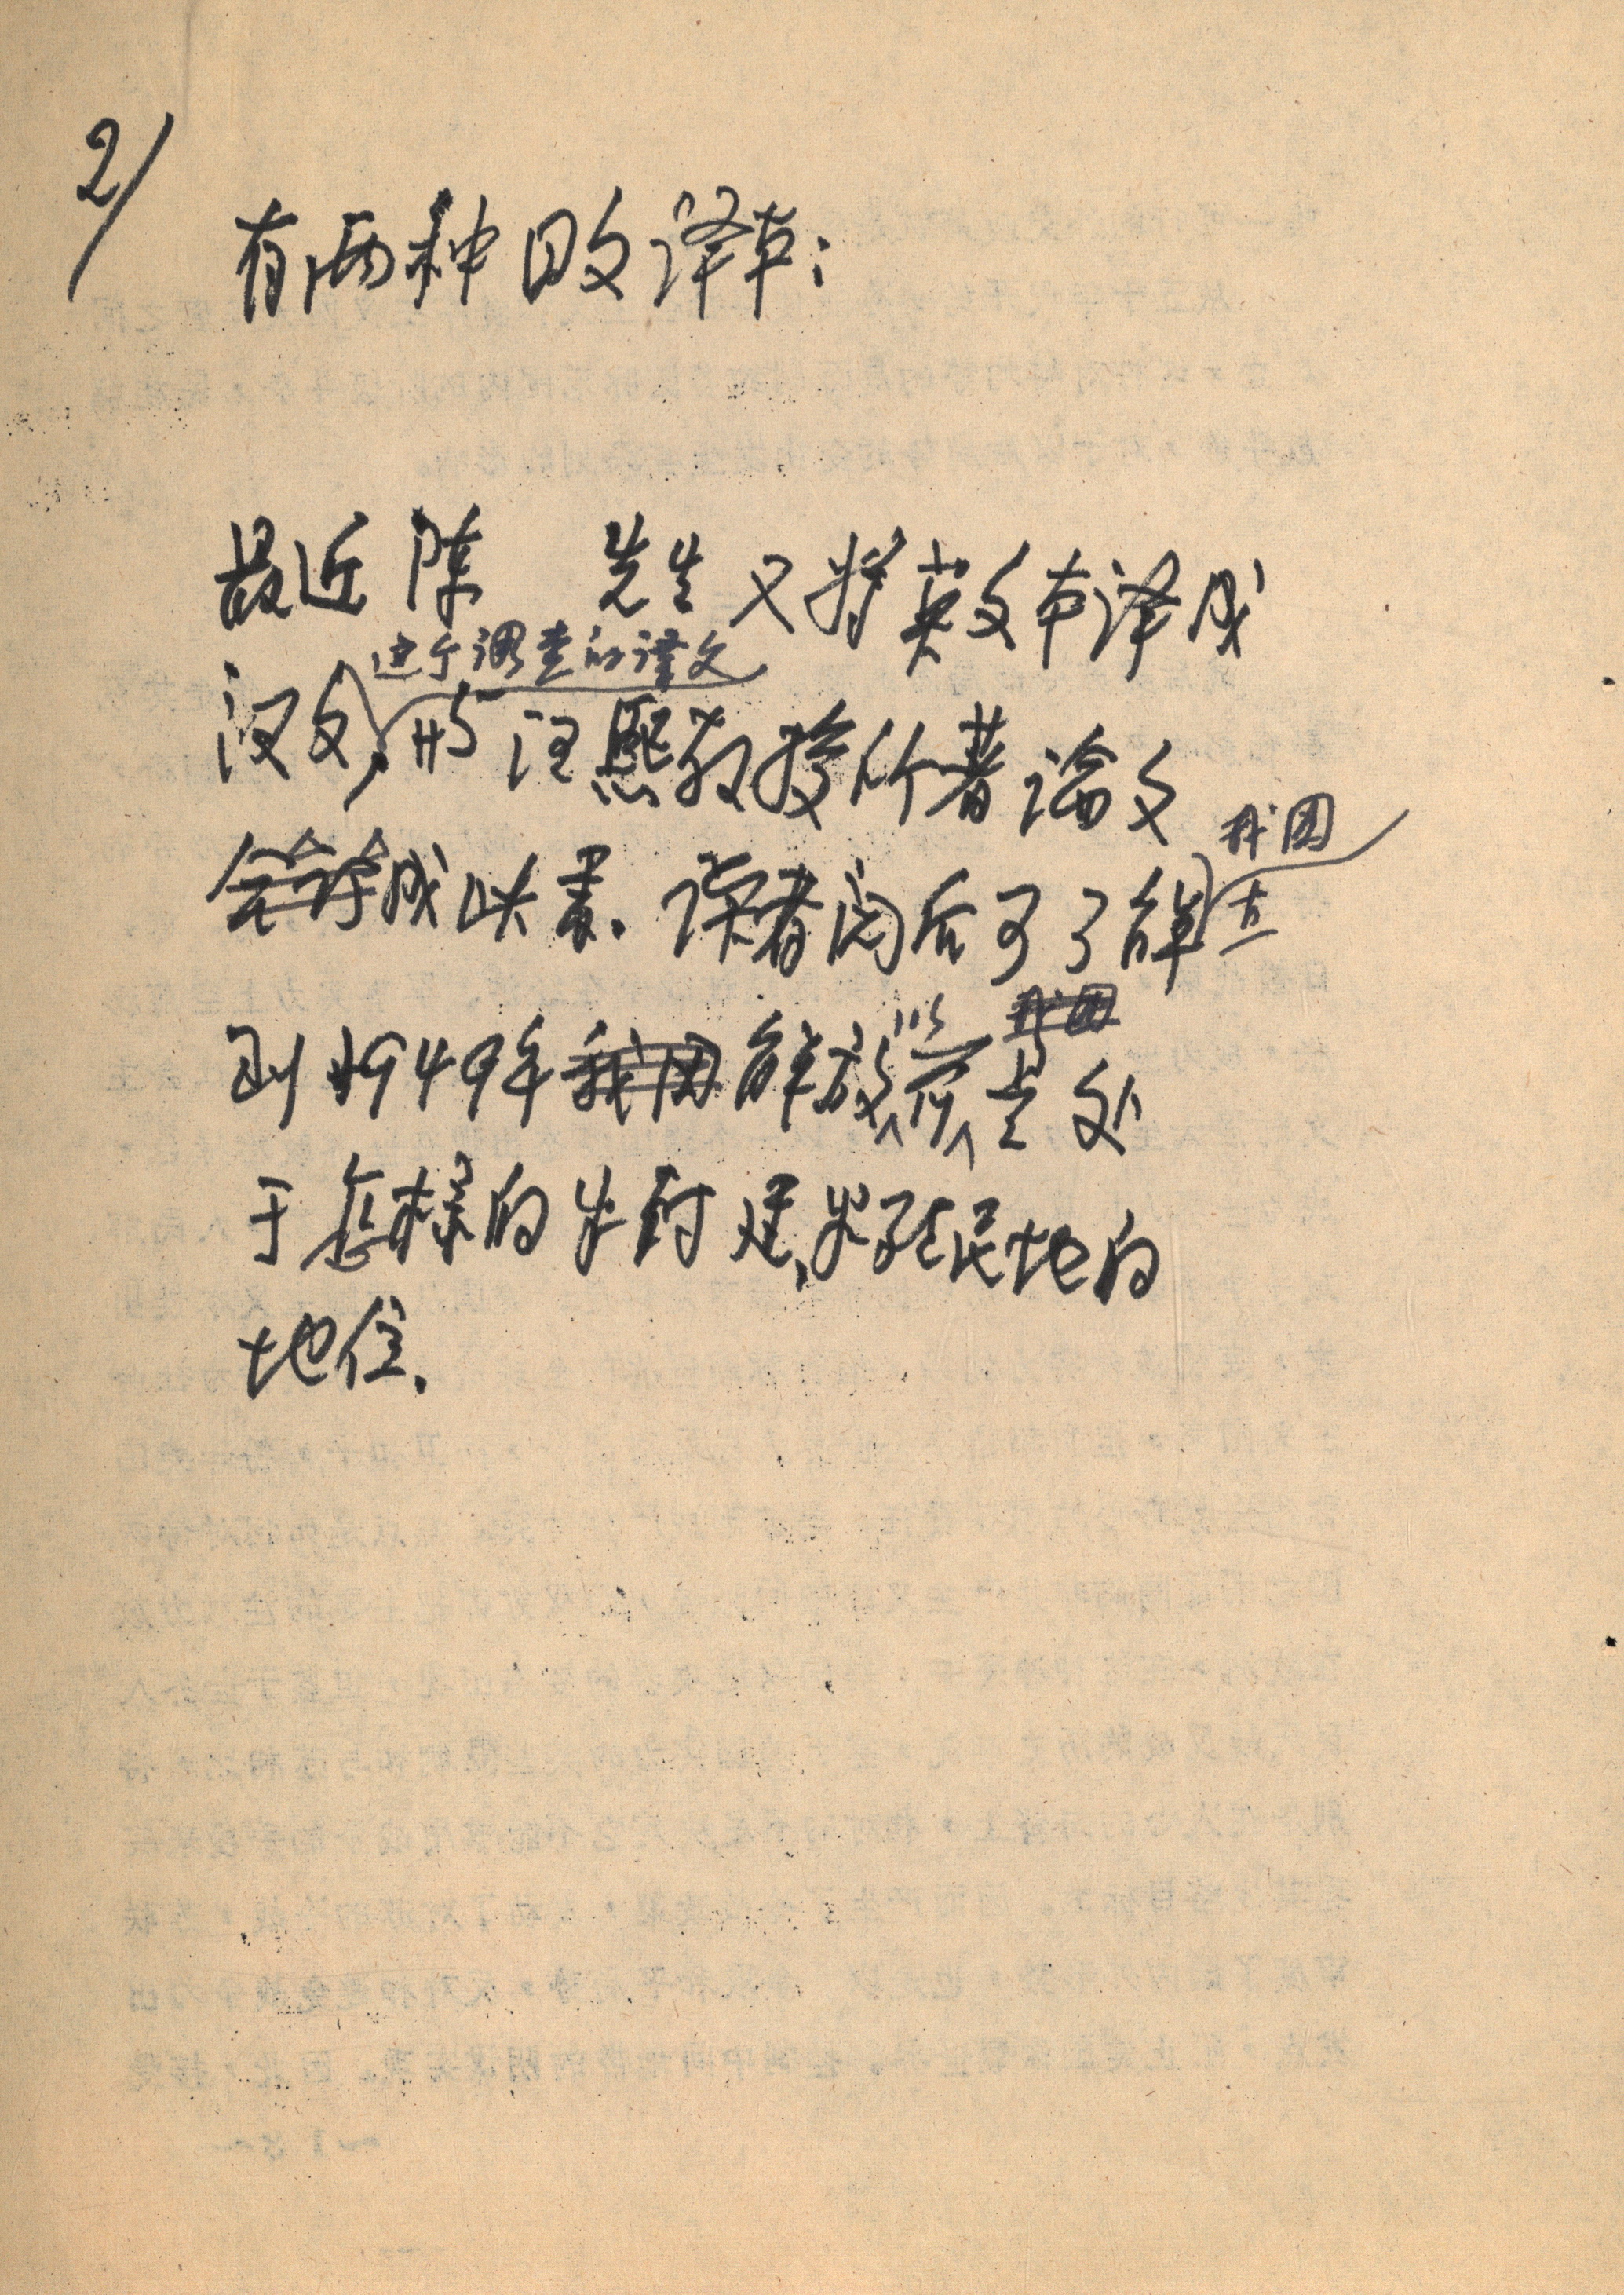 2/
有两种日文译本:
最近陈 先生又将英文本译成
这个调查的译文
汉文, 与汪熙教授所著论文
合订成此书. 读者阅后可了解
我国
在
到1949年我国解放以前
我国
是处
于怎样的半封建、半殖民地的
地位.